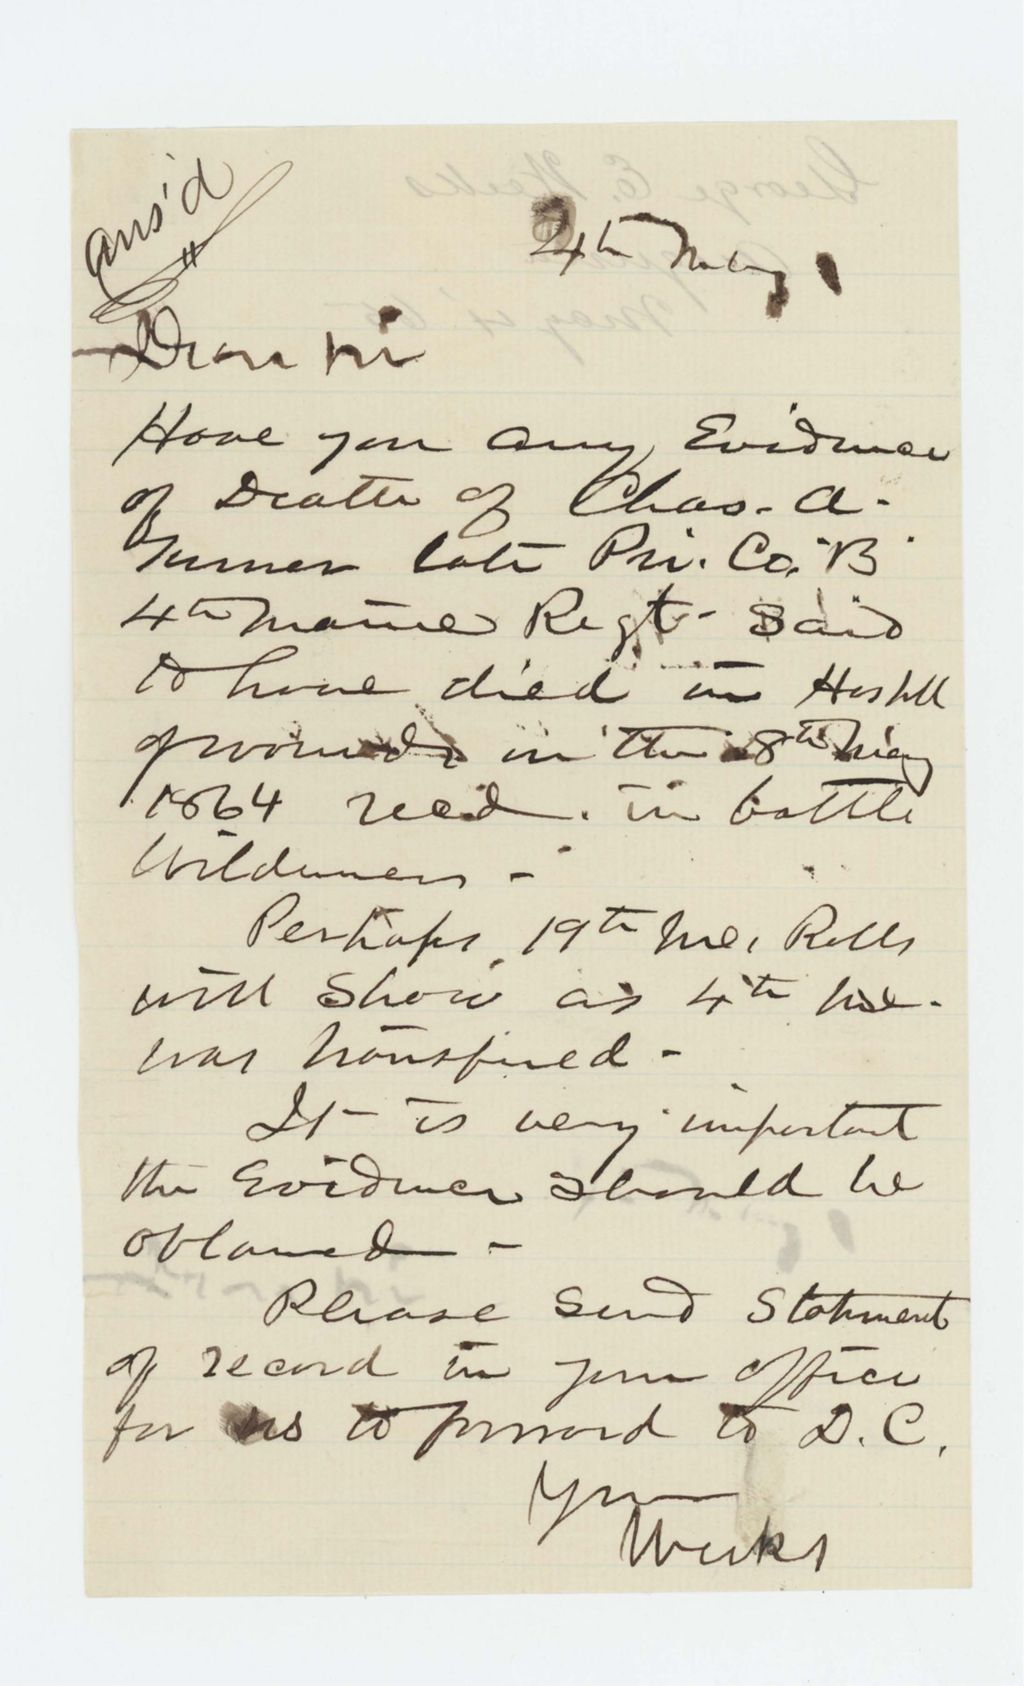 ans'd
4th May
Dear Sir
Have you any Evidence
of Death of Chas. A.
Turner late Pri. Co. "B"
4th Maine Regt. Said
to have died in Hospttl
of wounds on the 8th May
1864 recd. in battle
Wilderness -
Perhaps 19th Me. Rolls
will show as 4th Me.
was transfered -
It is very important
the Evidence should be
obtained -
Please send Statment
of record in your office
for us to forward to D.C.
Yours
Weeks